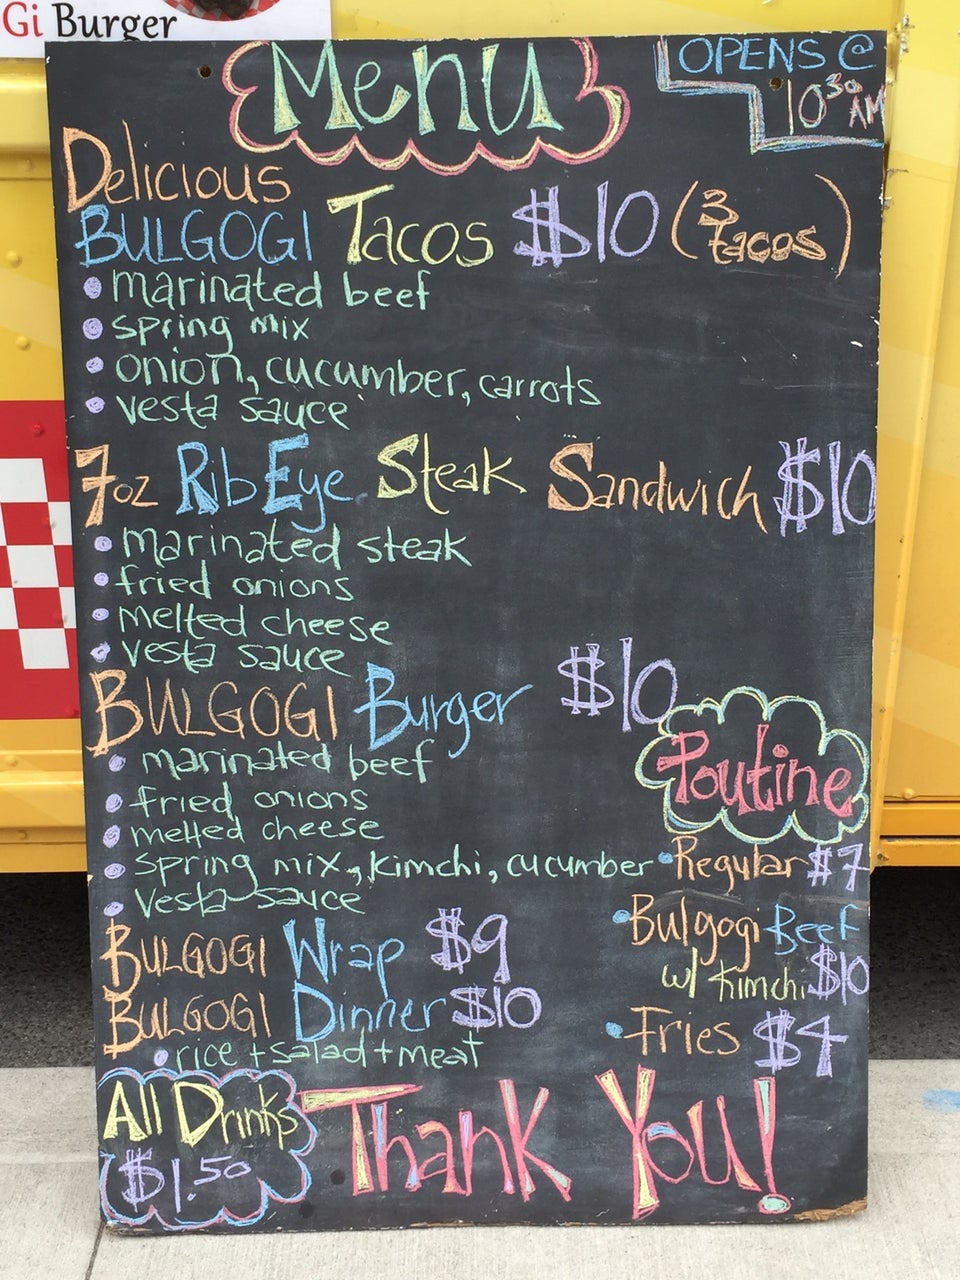 Gi Burger
Menu
OPENS @
10 30 AM
Delicious
BULGOGI Tacos $10 (3 tacos)
• marinated beef
• spring mix
• onion, cucumber, carrots
• vesta sauce
7oz RibEye Steak Sandwich $10
• marinated steak
• fried onions
• melted cheese
• vesta sauce
BULGOGI Burger $10
• marinated beef
• fried onions
• melted cheese
• spring mix, kimchi, cucumber
• vesta sauce
BULGOGI Wrap $9
BULGOGI Dinner $10
• rice + salad + meat
Poutine
• Regular $7
• Bulgogi Beef
w/ kimchi $10
• Fries $4
All Drinks
$1.50
Thank You!